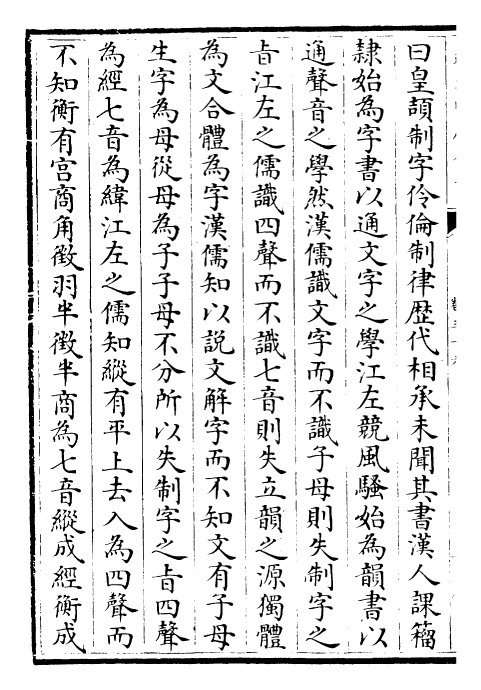 曰皇頡制字伶倫制律歴代相承未聞其書漢人課籀
隷始為字書以通文字之學江左競風騷始為韻書以
通聲音之學然漢儒識文字而不識子母則失制字之
㫖江左之儒識四聲而不識七音則失立韻之源獨體
為文合體為字漢儒知以説文解字而不知文有子母
生字為母從母為子子母不分所以失制字之㫖四聲
為經七音為緯江左之儒知縱有平上去入為四聲而
不知衡有宫商角徵羽半徵半商為七音縱成經衡成